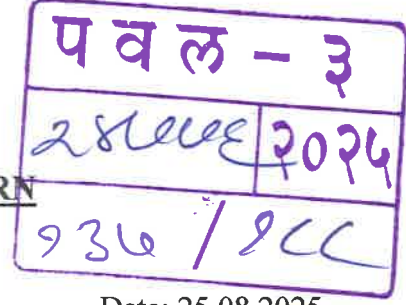 प व ल – ३
२०२५
RN
१३७ / १८८
Date: 25.08.2025